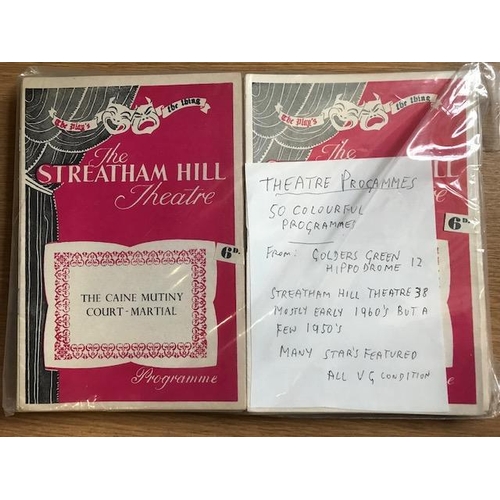 The Play's the thing
The
STREATHAM HILL
Theatre
6D.
THE CAINE MUTINY
COURT-MARTIAL
Programme
The Play's the thing
LL
Theatre
6D.
THEATRE PROGAMMES
50 COLOURFUL
PROGRAMMES
FROM: GOLDERS GREEN 12
HIPPODROME
STREATHAM HILL THEATRE 38
MOSTLY EARLY 1960'S BUT A
FEW 1950'S
MANY STAR'S FEATURED
ALL VG CONDITION